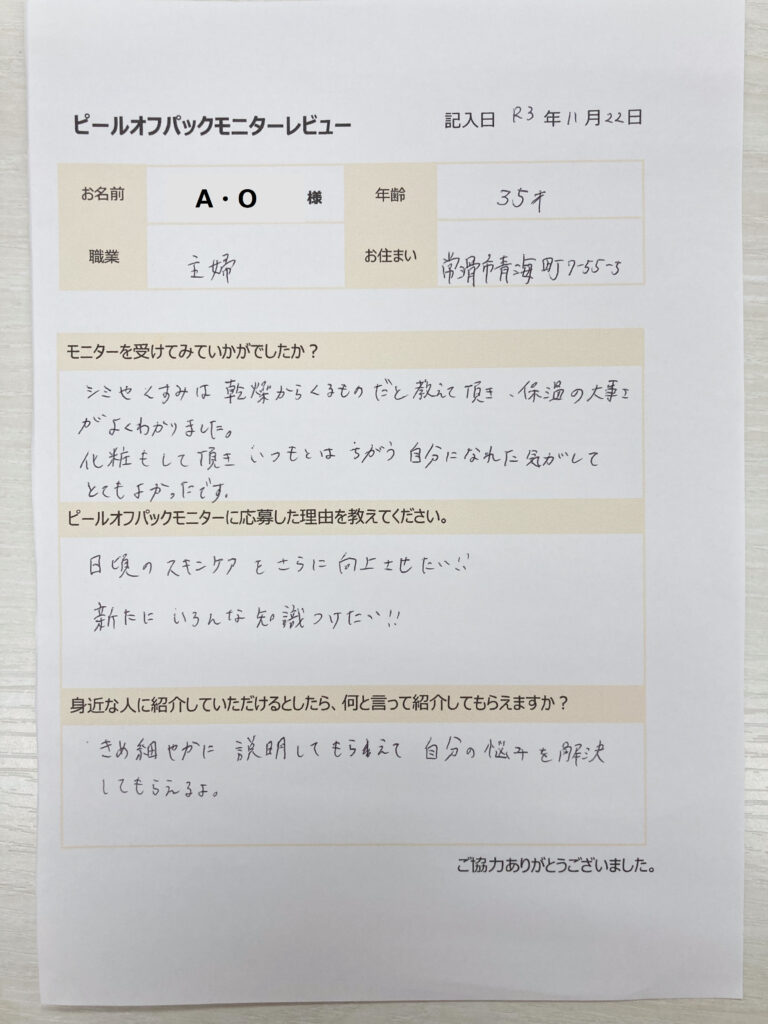 ピールオフパックモニターレビュー 記入日 R3 年 11 月 22 日
お名前 A・O 様 年齢 35才
職業 主婦 お住まい 常滑市青海町7-55-3
モニターを受けてみていかがでしたか？
シミやくすみは乾燥からくるものだと教えて頂き、保湿の大事さ
がよくわかりました。
化粧もして頂きいつもとはちがう自分になれた気がして
とてもよかったです。
ピールオフパックモニターに応募した理由を教えてください。
日頃のスキンケアをさらに向上させたい!!
新たにいろんな知識つけたい!!
身近な人に紹介していただけるとしたら、何と言って紹介してもらえますか？
きめ細やかに説明してもらえて自分の悩みを解決
してもらえるよ。
ご協力ありがとうございました。